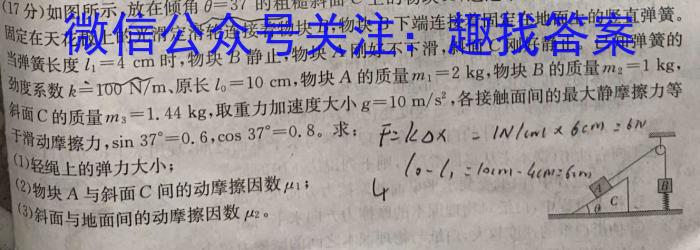 (17分)如图所示,放在倾角θ=37°的粗糙斜面C上的物块
微信公众号关注:趣找答案
固定在天花
当弹簧长度l₁=4 cm时,物块B静止,物块A刚好不下滑,
弹簧的
劲度系数k=100 N/m、原长l₀=10 cm,物块A的质量m₁=2 kg,物块B的质量m₂=1 kg,
斜面C的质量m₃=1.44 kg,取重力加速度大小g=10 m/s²,各接触面间的最大静摩擦力等
于滑动摩擦力,sin 37°=0.6,cos 37°=0.8。求:
F=kΔx = 1N/cm × 6cm = 6N
(1)轻绳上的弹力大小;
l₀-l₁=10cm-4cm=6cm
(2)物块A与斜面C间的动摩擦因数μ₁;
(3)斜面与地面间的动摩擦因数μ₂。
A
B
C
θ